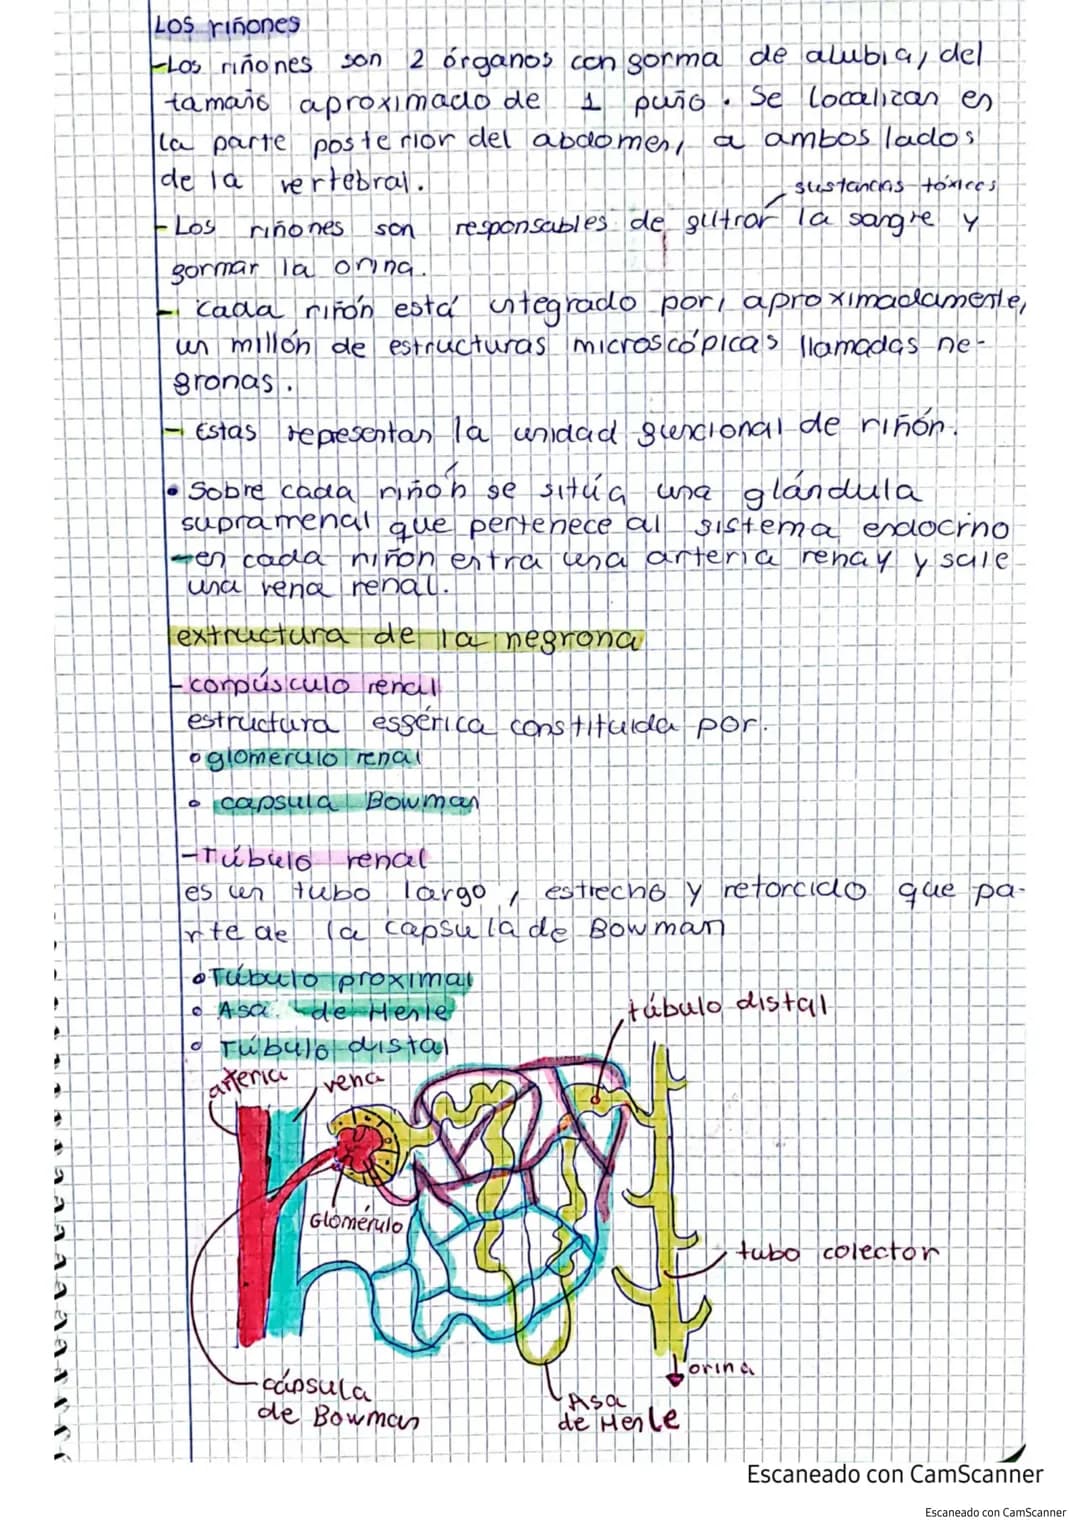 Los riñones
-Los riñones son 2 órganos con gorma de alubia, del
tamaño aproximado de 1 puño. Se localizan en
la parte posterior del abdomen, a ambos lados
de la vertebral.
sustancias tóxicas
-Los riñones son responsables de giltrar la sangre y
gormar la orina.
- Cada riñón está integrado por, aproximadamente,
un millón de estructuras microscópicas llamadas ne-
gronas.
- Estas representan la unidad guncional de riñón.
• Sobre cada riñón se sitúa una glándula
supramenal que pertenece al sistema endocrino
-en cada riñon entra una arteria renay y sale
una vena renal.
extructura de la negrona
-corpúsculo renal
estructura esgérica constituida por.
• glomerulo renal
• capsula Bowman
-Túbulo renal
es un tubo largo, estrecho y retorcido que pa-
rte de la capsula de Bowman
• Túbulo proximal
• Asa de Henle
• Túbulo distal
túbulo distal
arteria
vena
Glomérulo
tubo colector
orina
cápsula
de Bowman
Asa
de Henle
Escaneado con CamScanner
Escaneado con CamScanner